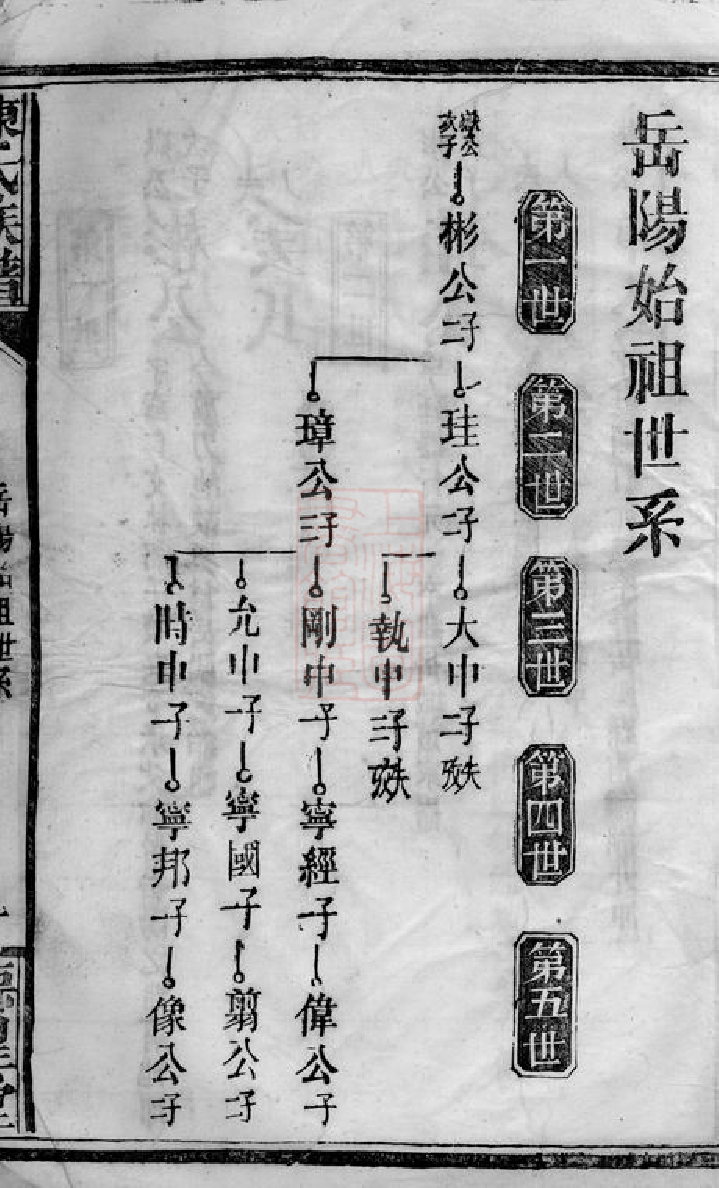 岳陽始祖世系
第一世 第二世 第三世 第四世 第五世
彬公二子 珪公二子 大中二子失攷
執中三子失攷
璋公三子 剛中一子 寧經一子 偉公一子
允中一子 寧國一子 翦公二子
時中一子 寧邦一子 像公二子
陳氏族譜
岳陽始祖世系